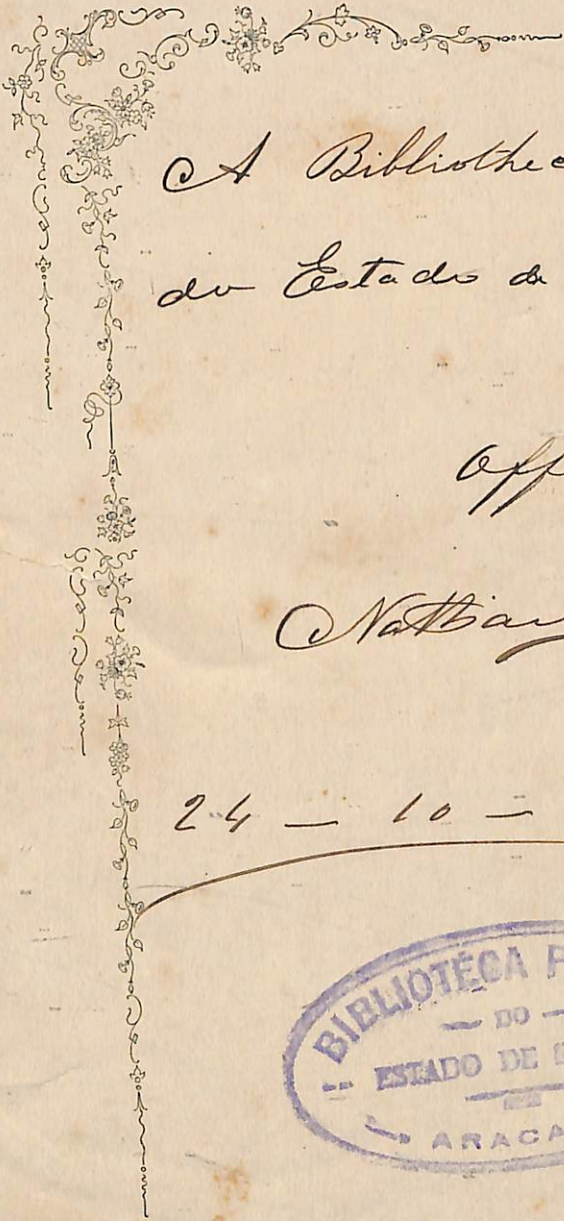 A Bibliothe
do Estado de
Off
24 — 10 —
BIBLIOTECA P
— DO —
ESTADO DE S
ARACA